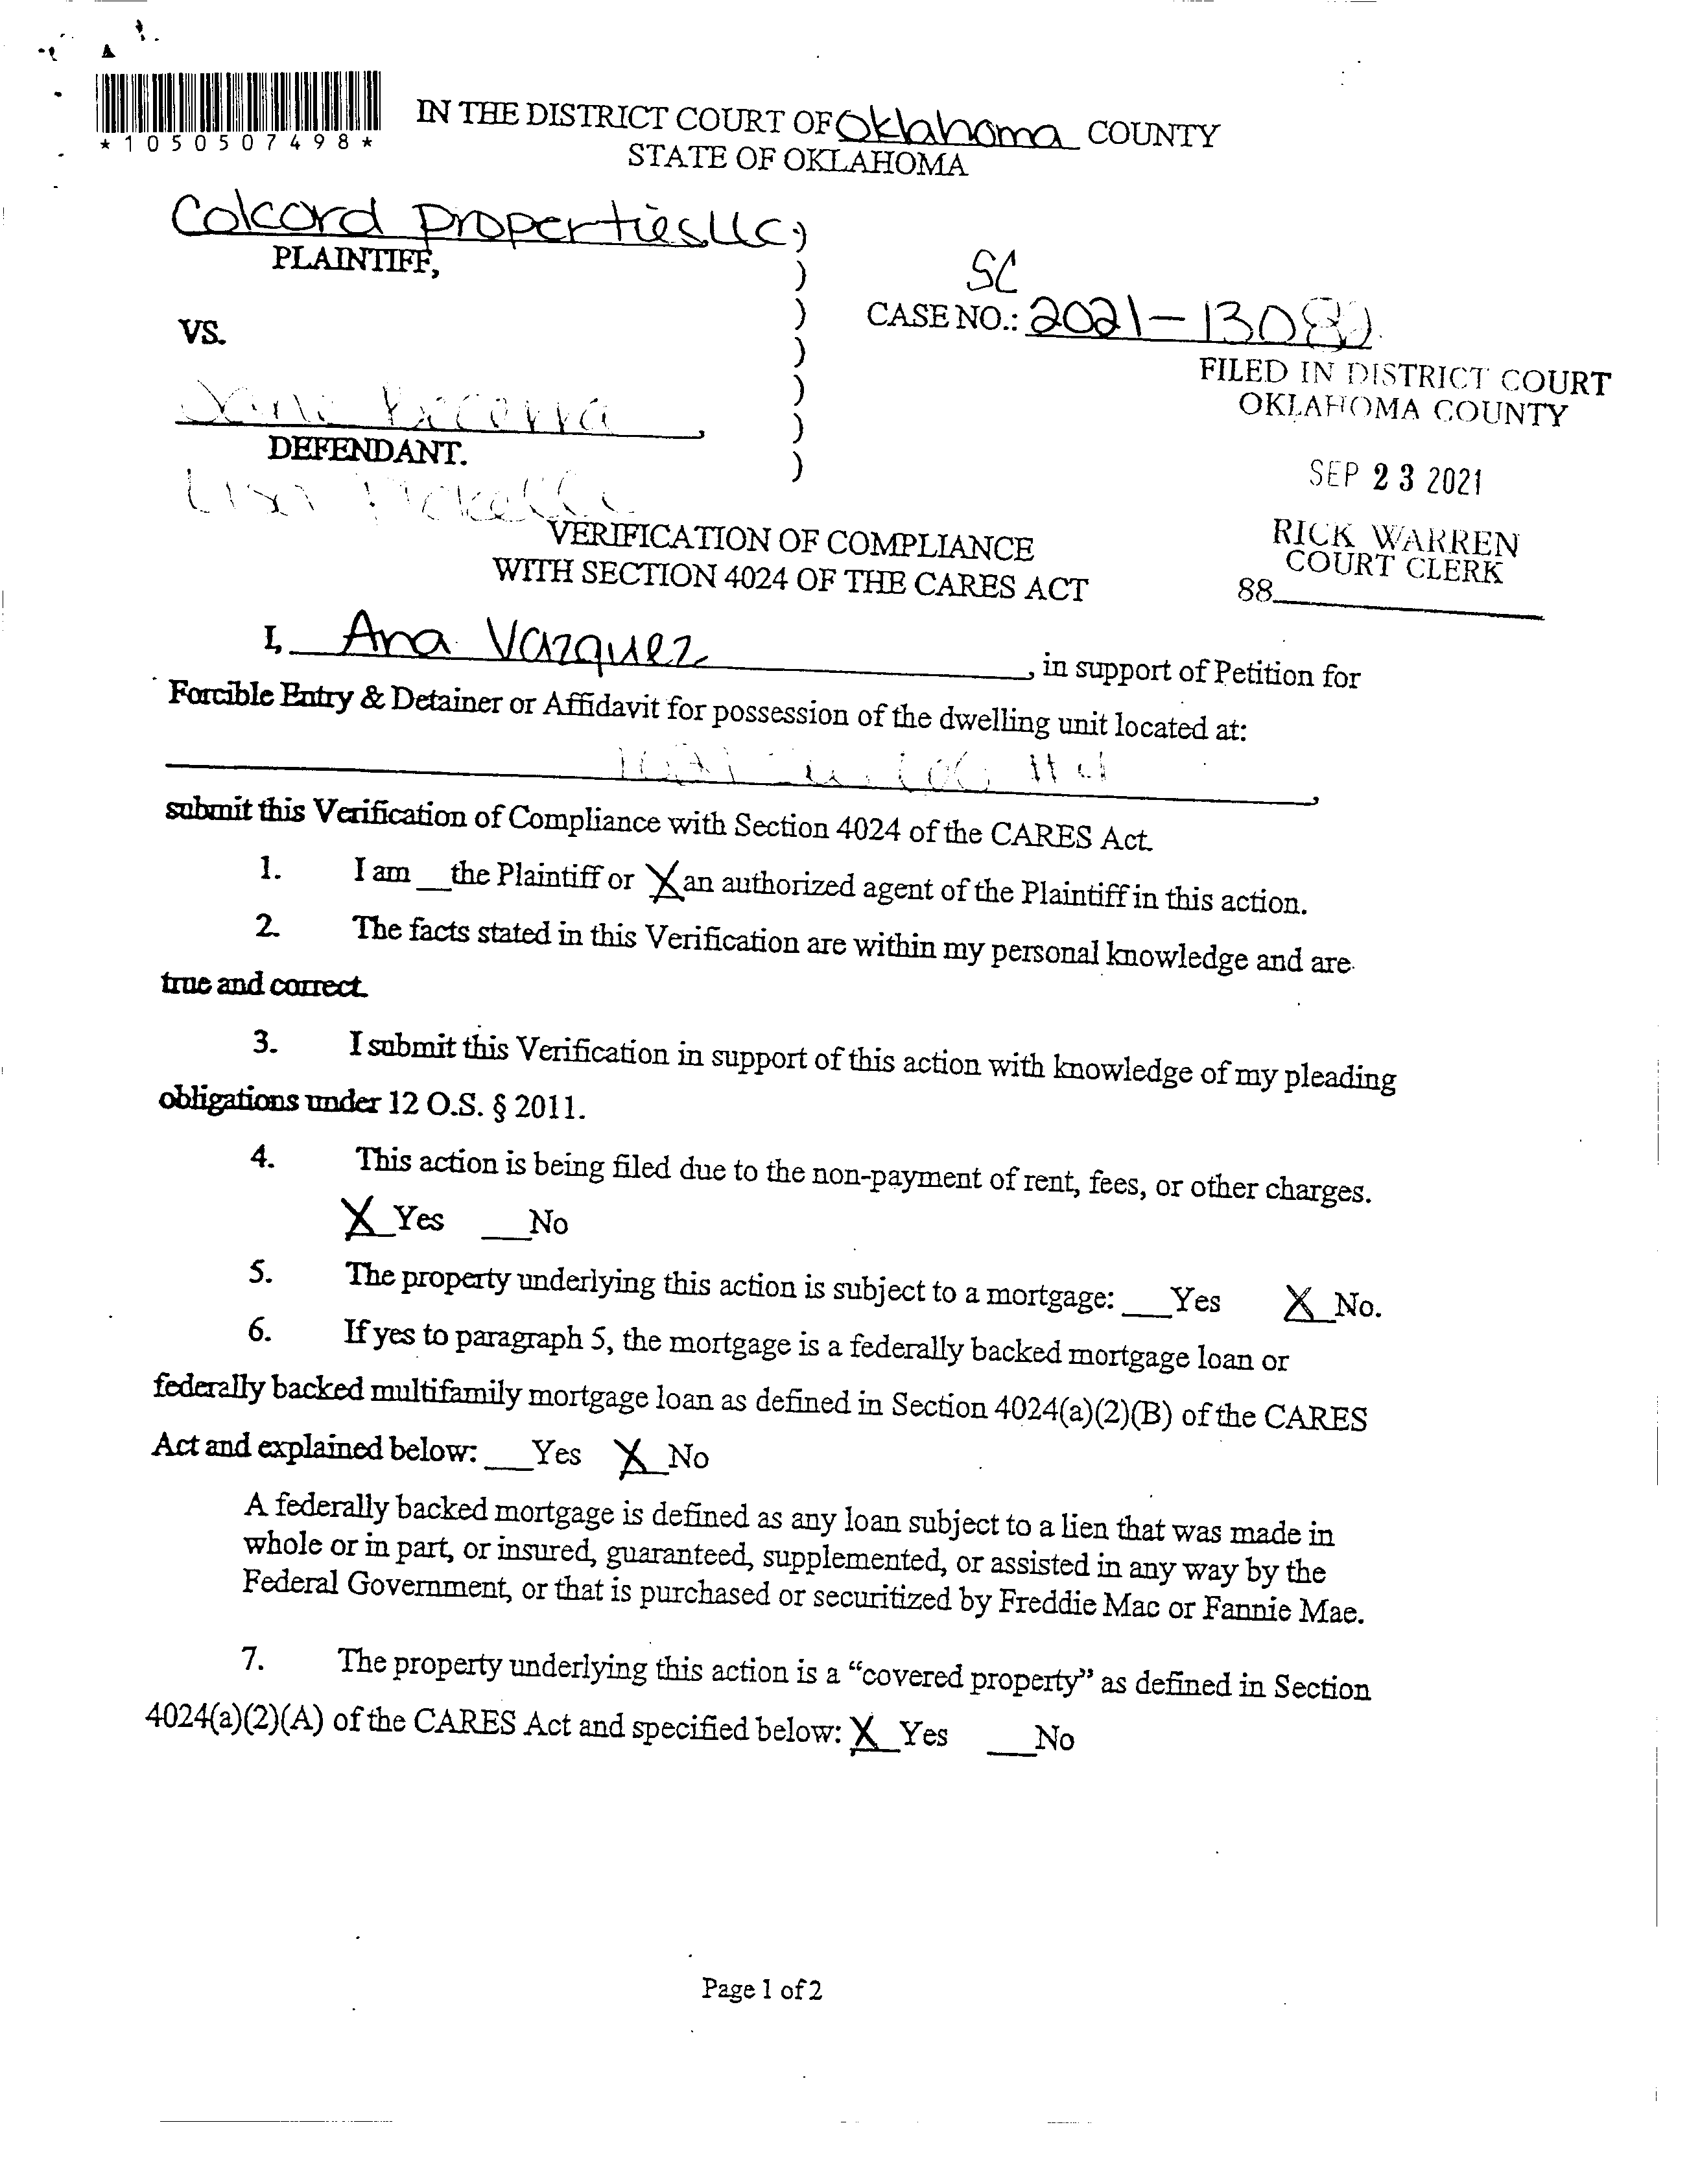 *1050507498*
IN THE DISTRICT COURT OF Oklahoma COUNTY
STATE OF OKLAHOMA
Colcord Properties LLC )
PLAINTIFF, )
SC
VS. ) CASE NO.: 2021-130
FILED IN DISTRICT COURT
OKLAHOMA COUNTY
Becerra, )
DEFENDANT. )
SEP 23 2021
Lisa
VERIFICATION OF COMPLIANCE
WITH SECTION 4024 OF THE CARES ACT
RICK WARREN
COURT CLERK
88
I, Ana Vazquez, in support of Petition for
Forcible Entry & Detainer or Affidavit for possession of the dwelling unit located at:
submit this Verification of Compliance with Section 4024 of the CARES Act.
1. I am __the Plaintiff or X an authorized agent of the Plaintiff in this action.
2. The facts stated in this Verification are within my personal knowledge and are
true and correct.
3. I submit this Verification in support of this action with knowledge of my pleading
obligations under 12 O.S. § 2011.
4. This action is being filed due to the non-payment of rent, fees, or other charges.
X Yes ___No
5. The property underlying this action is subject to a mortgage: ___Yes X No.
6. If yes to paragraph 5, the mortgage is a federally backed mortgage loan or
federally backed multifamily mortgage loan as defined in Section 4024(a)(2)(B) of the CARES
Act and explained below: ___Yes X No
A federally backed mortgage is defined as any loan subject to a lien that was made in
whole or in part, or insured, guaranteed, supplemented, or assisted in any way by the
Federal Government, or that is purchased or securitized by Freddie Mac or Fannie Mae.
7. The property underlying this action is a “covered property” as defined in Section
4024(a)(2)(A) of the CARES Act and specified below: X Yes ___No
Page 1 of 2